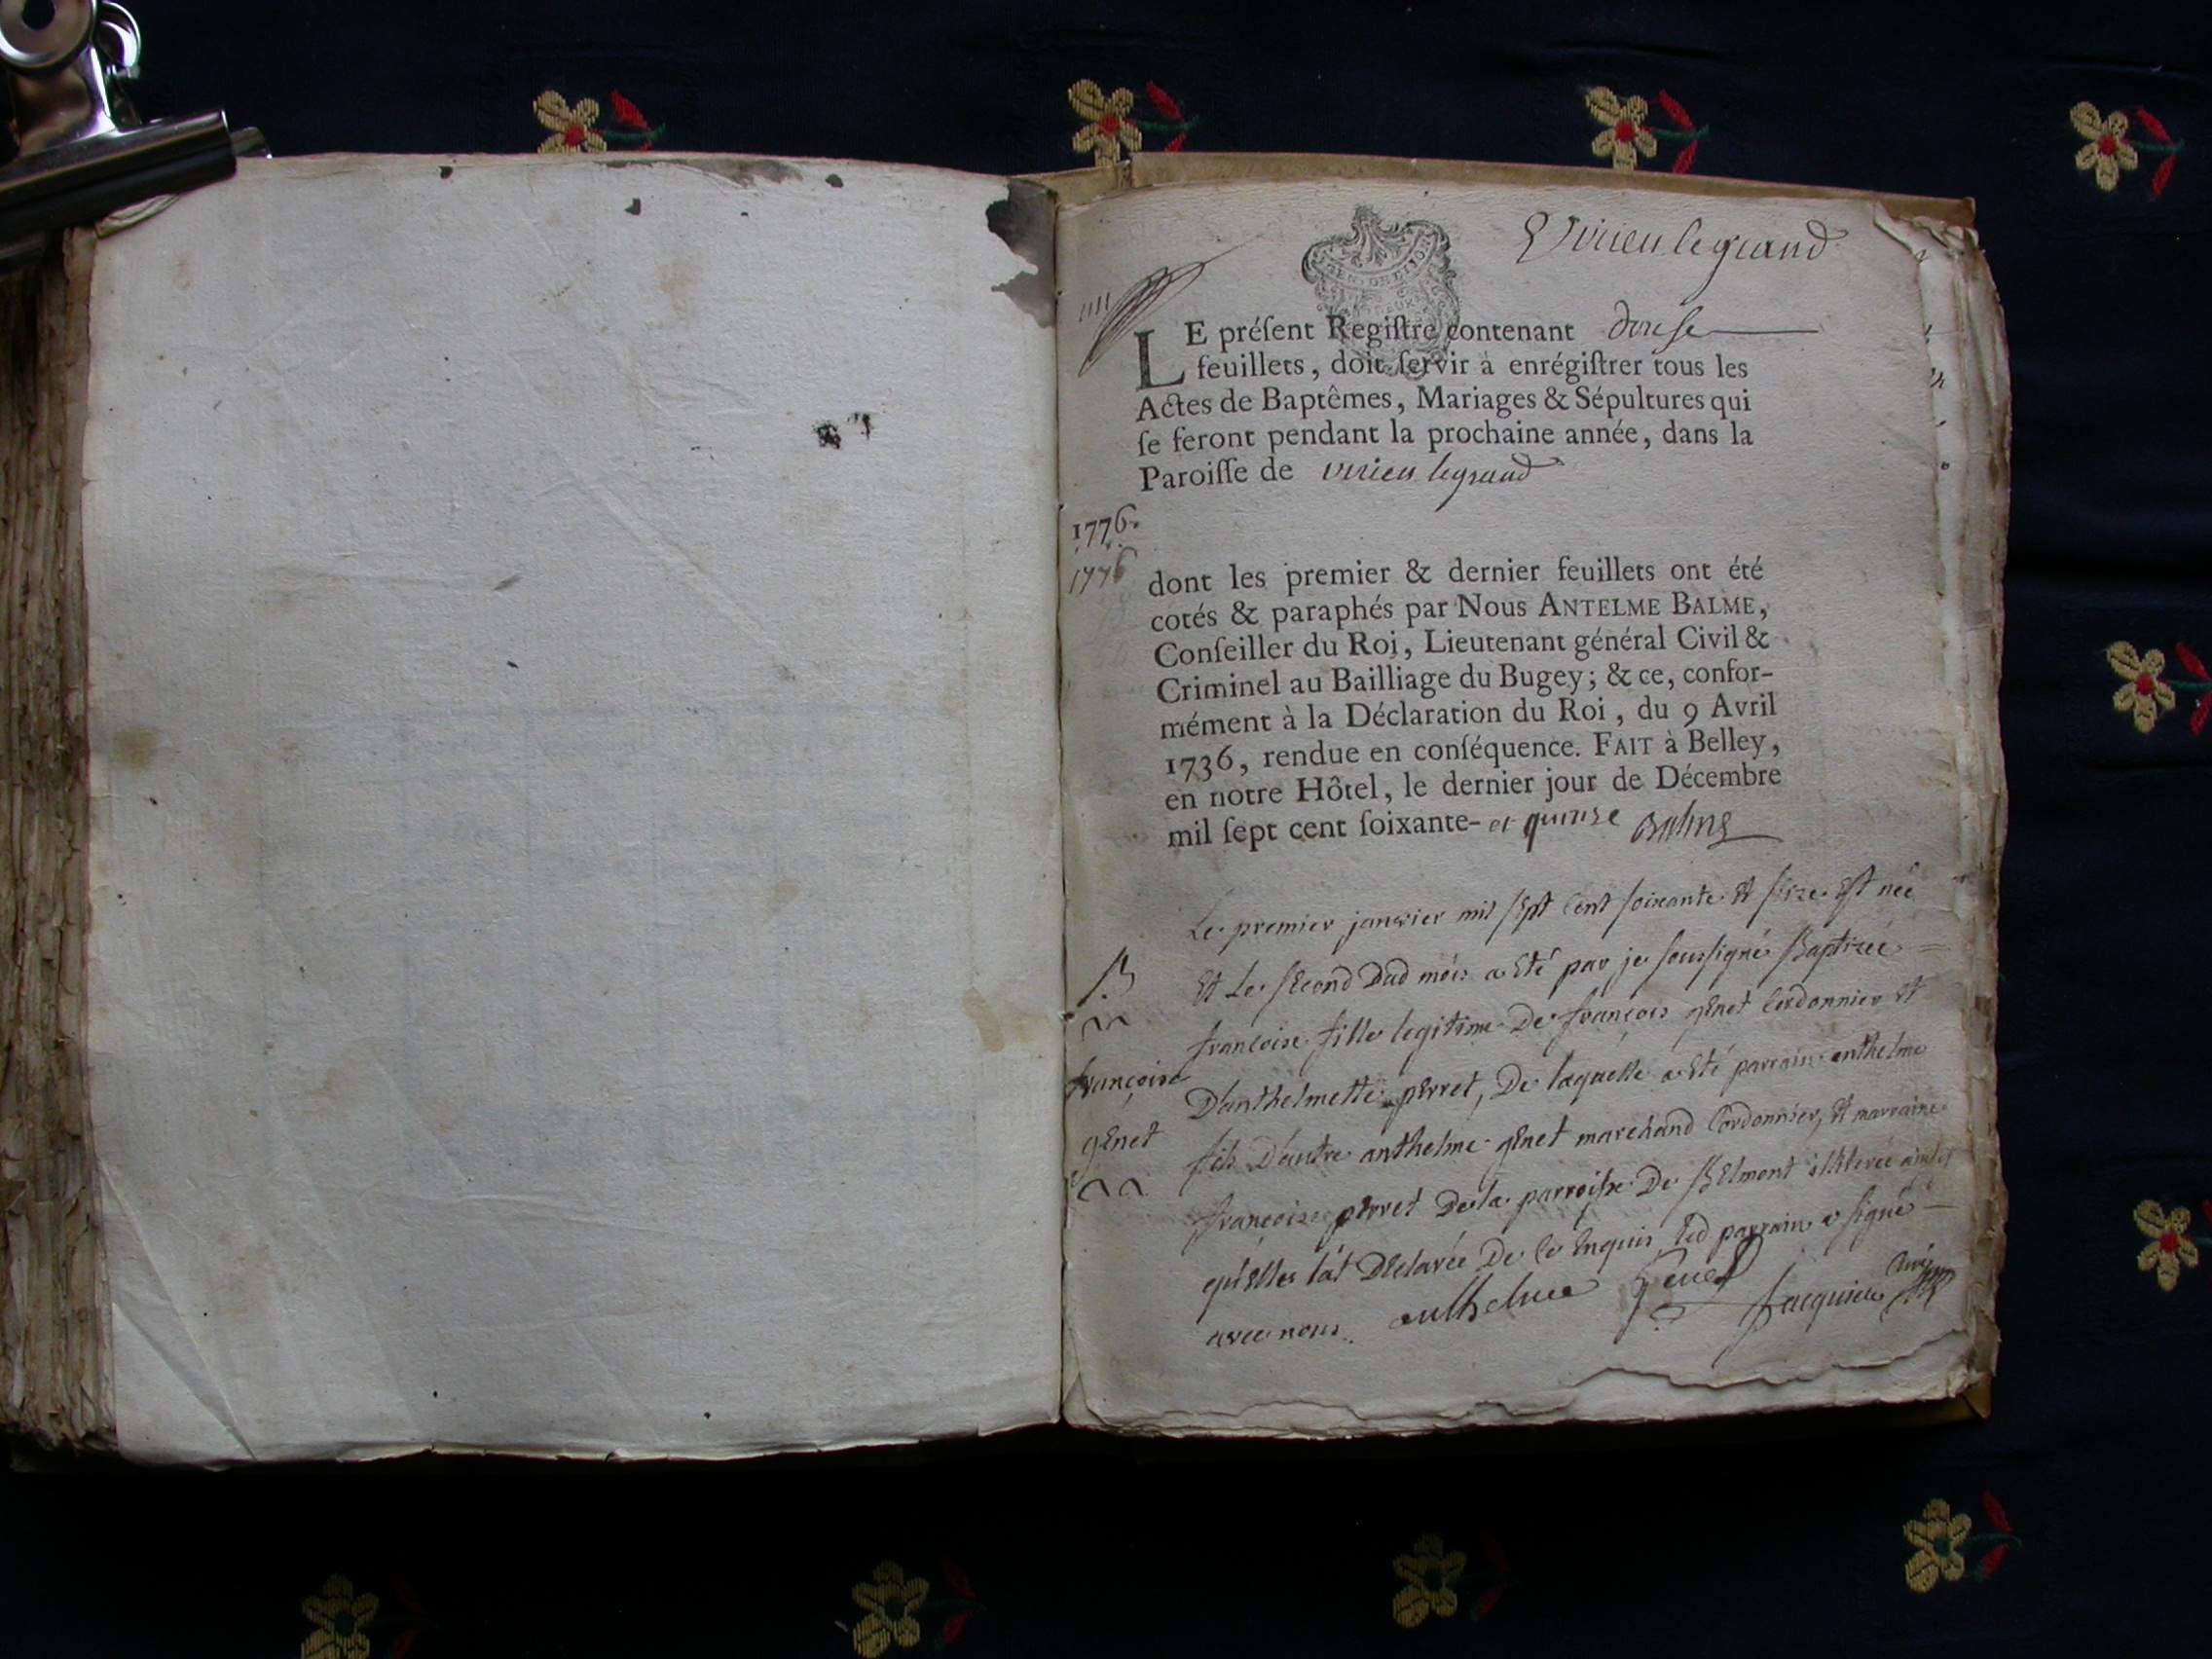 Virieu le grand
GEN. DE DIJON
LE préſent Regiſtre contenant douse
feuillets, doit ſervir à enrégiſtrer tous les
Actes de Baptêmes, Mariages & Sépultures qui
ſe feront pendant la prochaine année, dans la
Paroiſſe de virieu legrand
1776.
1776
dont les premier & dernier feuillets ont été
cotés & paraphés par Nous ANTELME BALME,
Conſeiller du Roi, Lieutenant général Civil &
Criminel au Bailliage du Bugey; & ce, confor-
mément à la Déclaration du Roi, du 9 Avril
1736, rendue en conſéquence. FAIT à Belley,
en notre Hôtel, le dernier jour de Décembre
mil ſept cent ſoixante- et quinse Balme
Le premier janvier mil sept cent soixante et seize est née
Et Le second Dud mois a été par je soussigné Baptizée
françoise fille legitime De françois genet Cordonnier et
D'anthelmette perret, De laquelle a été parrain anthelme
fils D'autre anthelme genet marchand Cordonnier, et marraine
françoise perret De la parroisse De Belmont illiterée ainsi
qu'elle l'at Declarée De ce Enquis led parrain a signé
avec nous. anthelme Genet Jacquier curé
B
françoise
genet